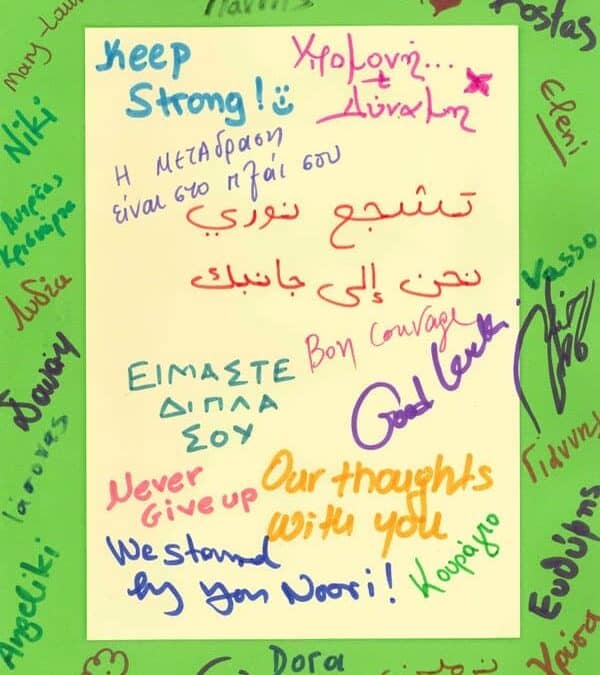 Γιάννης
Kostas
Mary-Lou
Keep
Strong!
Χρομονή...
+
Δύναμη
Niki
Eleni
Η ΜΕΤΑδραση
είναι στο πλάι σου
Ανδρέας
تشجع نوري
نحن إلى جانبك
Vasso
Λυδία
Bon Courage
Good Luck
Δανάη
ΕΙΜΑΣΤΕ
ΔΙΠΛΑ
ΣΟΥ
Ιάσονας
Γιάννης
Never
Give up
Our thoughts
with you
We stand
by you Noori!
Κουράγιο
Ευθύμης
Angeliki
Χρύσα
Dora